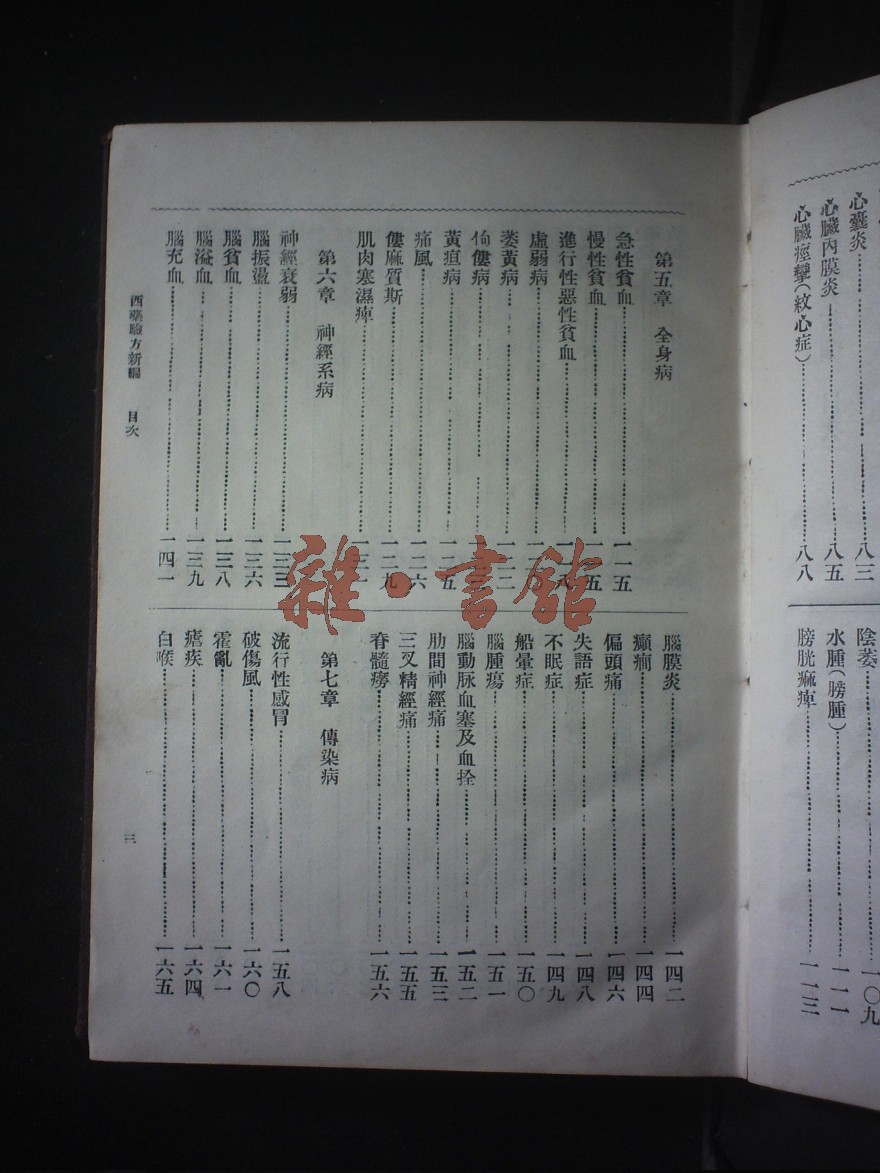 心囊炎……八三
心臟內膜炎……八五
心臟痙攣(紋心症)……八八
陰萎……一〇九
水腫(膀腫)……一一一
膀胱痲痺……一一三
第五章 全身病
急性貧血……一一五
慢性貧血……
進行性惡性貧血……
虛弱病……
萎黃病……
佝僂病……
黃疸病……
痛風……一二六
僂麻質斯……一二九
肌肉寒濕痺……
第六章 神經系病
神經衰弱……一三三
腦振盪……一三六
腦貧血……一三八
腦溢血……一三九
腦充血……一四一
腦膜炎……一四二
癲癇……一四四
偏頭痛……一四六
失語症……一四八
不眠症……一四九
船暈症……一五〇
腦腫瘍……一五一
腦動脉血塞及血拴……一五二
肋間神經痛……一五三
三叉精經痛……一五五
脊髓癆……一五六
第七章 傳染病
流行性感冒……一五八
破傷風……一六〇
霍亂……一六一
瘧疾……一六四
白喉……一六五
西藥驗方新編 目次
三
雜·書館